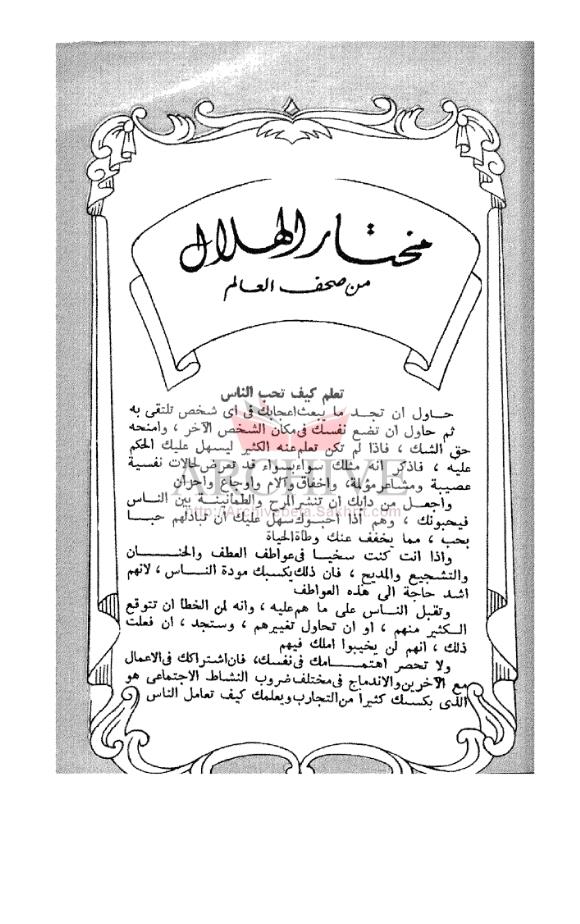 مختار الهلال
من صحف العالم
تعلم كيف تحب الناس
حاول ان تجد ما يبعث اعجابك فى اى شخص تلتقى به
ثم حاول ان تضع نفسك فى مكان الشخص الآخر ، وامنحه
حق الشك ، فاذا لم تكن تعلم عنه الكثير ليسهل عليك الحكم
عليه ، فاذكر انه مثلك سواء بسواء قد تعرض لحالات نفسية
عصيبة ومشاعر مؤلمة، واخفاق وآلام وأوجاع وأحزان
واجعل من دأبك ان تنشر المرح والطمأنينة بين الناس
فيحبونك ، وهم اذا أحبوك سهل عليك أن تبادلهم حبا
بحب ، مما يخفف عنك وطأة الحياة
واذا انت كنت سخيا فى عواطف العطف والحنان
والتشجيع والمديح ، فان ذلك يكسبك مودة الناس ، لانهم
اشد حاجة الى هذه العواطف
وتقبل الناس على ما هم عليه ، وانه لمن الخطأ ان تتوقع
الكثير منهم ، او ان تحاول تغييرهم ، وستجد ، ان فعلت
ذلك ، انهم لن يخيبوا املك فيهم
ولا تحصر اهتمامك فى نفسك، فان اشتراكك فى الاعمال
مع الآخرين والاندماج فى مختلف ضروب النشاط الاجتماعى هو
الذى يكسبك كثيرا من التجارب ويعلمك كيف تعامل الناس
ARCHIVE
http://Archivebeta.Sakhrit.com